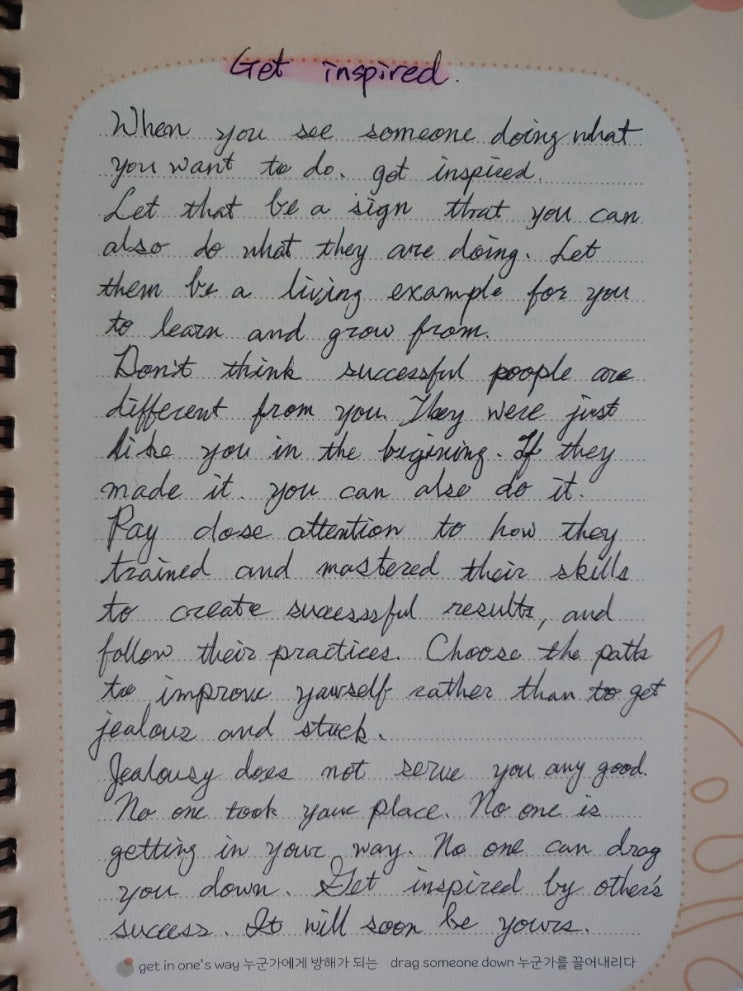 Get inspired.
When you see someone doing what
you want to do. get inspired.
Let that be a sign that you can
also do what they are doing. Let
them be a living example for you
to learn and grow from.
Don't think successful people are
different from you. They were just
like you in the bigining. If they
made it. you can also do it.
Pay close attention to how they
trained and mastered their skills
to create successsful results, and
follow their practices. Choose the path
to improve yourself rather than to get
jealous and stuck.
Jealousy does not serve you any good.
No one took your place. No one is
getting in your way. No one can drag
you down. Get inspired by other's
success. It will soon be yours.
get in one's way 누군가에게 방해가 되는 drag someone down 누군가를 끌어내리다